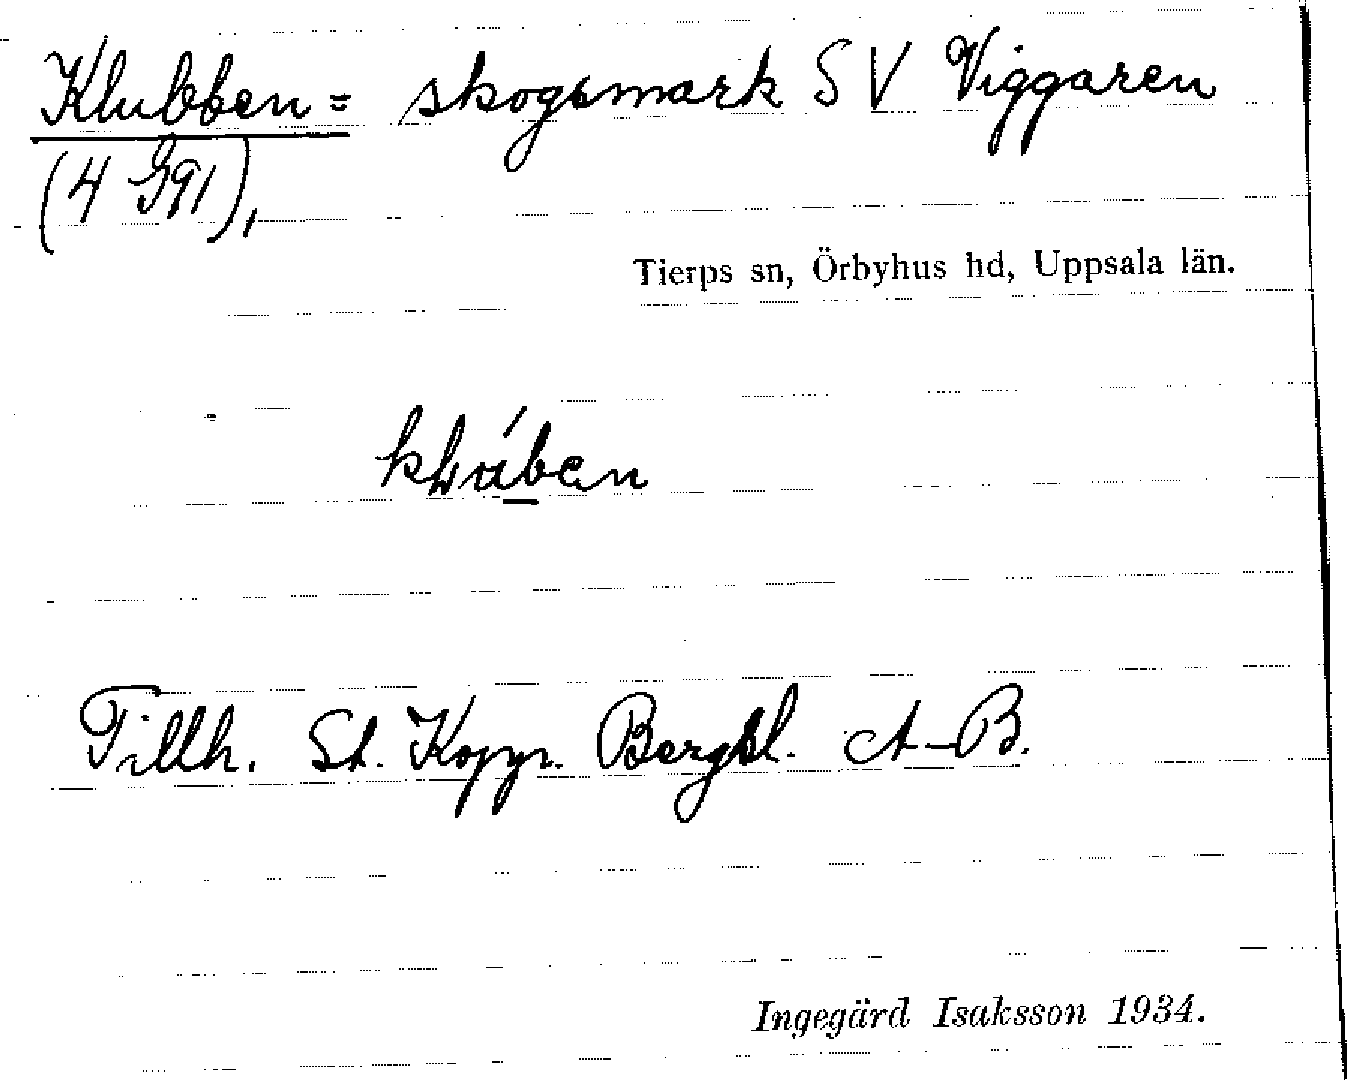 Klubben = skogsmark SV Viggaren
(4 Gg1),
Tierps sn, Örbyhus hd, Uppsala län.
Tillh. St. Koppr. Bergsl. A-B.
Ingegärd Isaksson 1934.